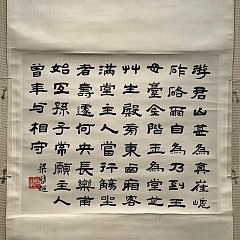 游君山甚為真崔嵬
砟硌爾自為乃到王
母臺金階玉為堂芝
艸生殿旁東西廂客
滿堂主人當行觴坐
者壽遽何央長樂甫
始宜孫子常願主人
曾年与相守
梁